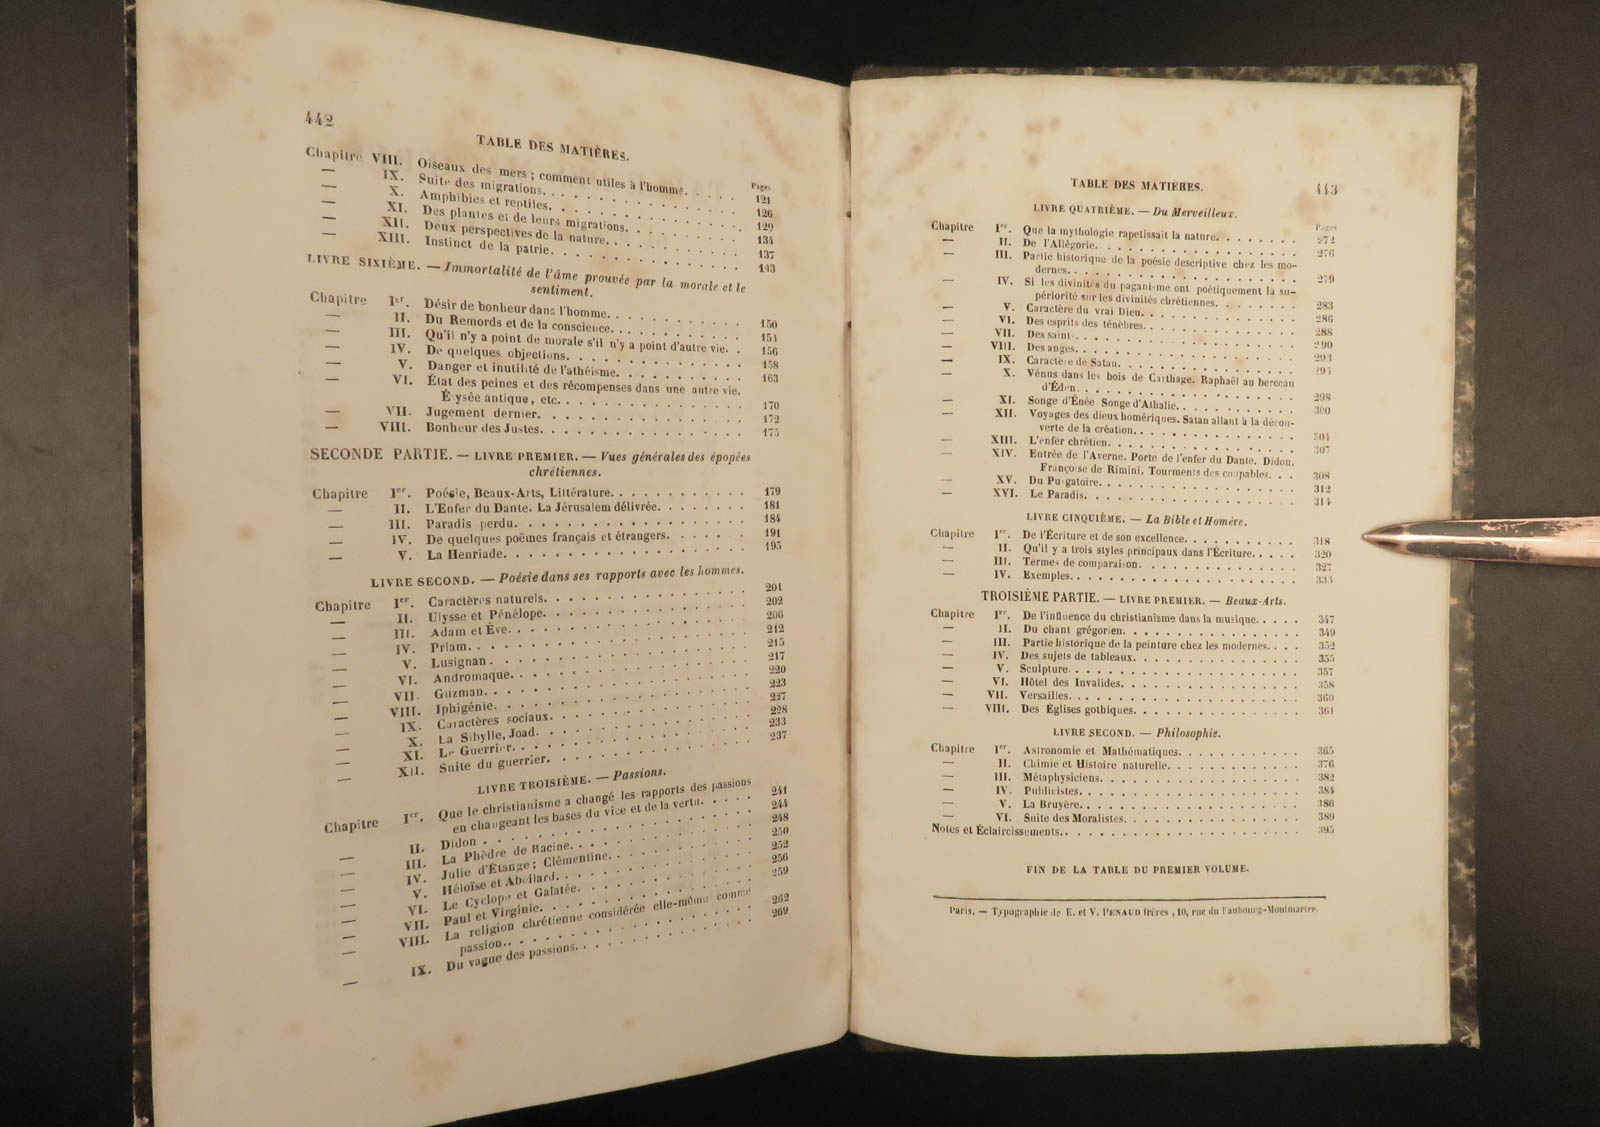 442
TABLE DES MATIÈRES.
Pages
Chapitre VIII. Oiseaux des mers ; comment utiles à l'homme. . . . . 121
— IX. Suite des migrations. . . . . 126
— X. Amphibies et reptiles. . . . . 129
— XI. Des plantes et de leurs migrations. . . . . 134
— XII. Deux perspectives de la nature. . . . . 137
— XIII. Instinct de la patrie. . . . . 143
LIVRE SIXIÈME. — Immortalité de l'âme prouvée par la morale et le
sentiment.
Chapitre Ier. Désir de bonheur dans l'homme. . . . . 150
— II. Du Remords et de la conscience. . . . . 153
— III. Qu'il n'y a point de morale s'il n'y a point d'autre vie. . 156
— IV. De quelques objections. . . . . 158
— V. Danger et inutilité de l'athéisme. . . . . 163
— VI. État des peines et des récompenses dans une autre vie.
É ysée antique, etc. . . . . 170
— VII. Jugement dernier. . . . . 172
— VIII. Bonheur des Justes. . . . . 175
SECONDE PARTIE. — LIVRE PREMIER. — Vues générales des épopées
chrétiennes.
Chapitre Ier. Poésie, Beaux-Arts, Littérature. . . . . 179
— II. L'Enfer du Dante. La Jérusalem délivrée. . . . . 181
— III. Paradis perdu. . . . . 184
— IV. De quelques poëmes français et étrangers. . . . . 191
— V. La Henriade. . . . . 195
LIVRE SECOND. — Poésie dans ses rapports avec les hommes.
Chapitre Ier. Caractères naturels. . . . . 201
— II. Ulysse et Pénélope. . . . . 202
— III. Adam et Ève. . . . . 206
— IV. Priam. . . . . 212
— V. Lusignan. . . . . 215
— VI. Andromaque. . . . . 217
— VII. Guzman. . . . . 220
— VIII. Iphigénie. . . . . 223
— IX. Caractères sociaux. . . . . 227
— X. La Sibylle, Joad. . . . . 228
— XI. Le Guerrier. . . . . 233
— XII. Suite du guerrier. . . . . 237
LIVRE TROISIÈME. — Passions.
Chapitre Ier. Que le christianisme a changé les rapports des passions
en changeant les bases du vice et de la vertu. . . . . 241
— II. Didon . . . . . 244
— III. La Phèdre de Racine. . . . . 248
— IV. Julie d'Étange ; Clémentine. . . . . 250
— V. Héloïse et Abeilard. . . . . 252
— VI. Le Cyclope et Galatée. . . . . 256
— VII. Paul et Virginie. . . . . 259
— VIII. La religion chrétienne considérée elle-même comme
passion. . . . . 262
— IX. Du vague des passions. . . . . 269
TABLE DES MATIÈRES. 443
LIVRE QUATRIÈME. — Du Merveilleux.
Pages
Chapitre Ier. Que la mythologie rapetissait la nature. . . . . 272
— II. De l'Allégorie. . . . . 276
— III. Partie historique de la poésie descriptive chez les mo-
dernes. . . . . 279
— IV. Si les divinit s du paganisme ont poétiquement la su-
périorité sur les divinités chrétiennes. . . . . 283
— V. Caractère du vrai Dieu. . . . . 286
— VI. Des esprits des ténèbres. . . . . 288
— VII. Des saint . . . . . 290
— VIII. Des anges. . . . . 293
— IX. Caractère de Satan. . . . . 295
— X. Vénus dans les bois de Carthage. Raphaël au berceau
d'Éden. . . . . 298
— XI. Songe d'Énée Songe d'Athalie. . . . . 300
— XII. Voyages des dieux homériques. Satan allant à la décou-
verte de la création. . . . . 304
— XIII. L'enfer chrétien. . . . . 307
— XIV. Entrée de l'Averne. Porte de l'enfer du Dante. Didon.
Françoise de Rimini. Tourments des coupables. . . . 308
— XV. Du Purgatoire. . . . . 312
— XVI. Le Paradis. . . . . 314
LIVRE CINQUIÈME. — La Bible et Homère.
Chapitre Ier. De l'Écriture et de son excellence. . . . . 318
— II. Qu'il y a trois styles principaux dans l'Écriture. . . . . 320
— III. Termes de comparaison. . . . . 327
— IV. Exemples. . . . . 333
TROISIÈME PARTIE. — LIVRE PREMIER. — Beaux-Arts.
Chapitre Ier. De l'influence du christianisme dans la musique. . . . . 347
— II. Du chant grégorien. . . . . 349
— III. Partie historique de la peinture chez les modernes. . . . 352
— IV. Des sujets de tableaux. . . . . 355
— V. Sculpture. . . . . 357
— VI. Hôtel des Invalides. . . . . 358
— VII. Versailles. . . . . 360
— VIII. Des Églises gothiques. . . . . 361
LIVRE SECOND. — Philosophie.
Chapitre Ier. Astronomie et Mathématiques. . . . . 365
— II. Chimie et Histoire naturelle. . . . . 376
— III. Métaphysiciens. . . . . 382
— IV. Publicistes. . . . . 384
— V. La Bruyère. . . . . 386
— VI. Suite des Moralistes. . . . . 389
Notes et Éclaircissements. . . . . 395
FIN DE LA TABLE DU PREMIER VOLUME.
Paris. — Typographie de E. et V. PENAUD frères , 10, rue du Faubourg-Montmartre.